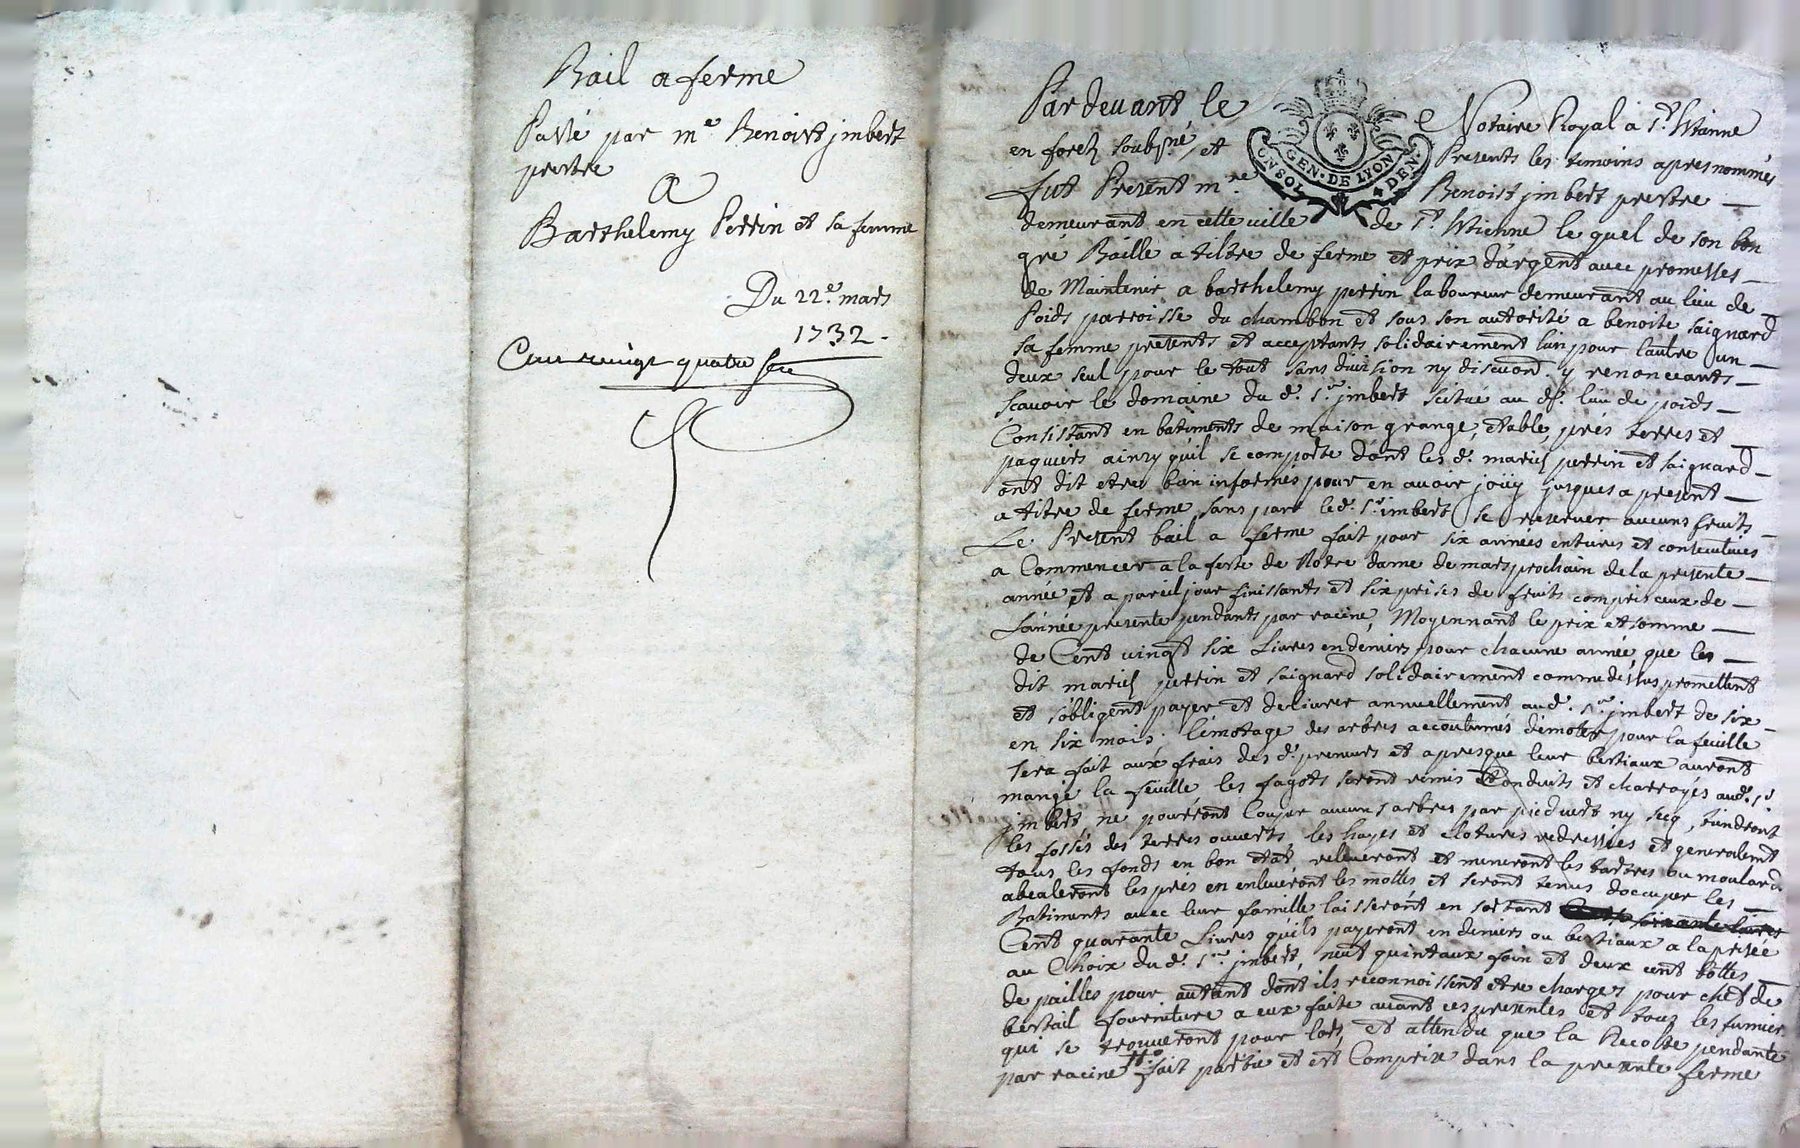 Bail a ferme
Passé par me Benoist jmbert
prestre
A
Barthelemy Perrin et sa femme
Du 22e. mars
1732.
Cent vingt quatre
Pardevant le Notaire Royal à St. Etienne
en forest soubsné, et Presents les temoins apres nommés
fut Present mre Benoist jmbert prestre
demeurant en cette ville de St. Etienne le quel de son bon
gré Baille a tiltre de ferme et prix d'argent avec promesses
de Maintenir a barthelemy perrin laboureur demeurant au lieu de
Poids parroisse du chambon et sous son autorité a benoite saignard
sa femme presents et acceptants solidairement l'un pour l'autre un
deux seul pour le tout sans division ny discuon. y renonceants
scavoir le domaine du d. sr. jmbert scitué au d. lieu de poids
Consistant en batiments de maison grange, etable, prés terres et
paquiers ainsy quil se comporte dont les d. mariés perrin et saignard
ont dit etre bien informés pour en avoir joüy jusques a present
a titre de ferme, sans par le d. sr. jmbert se reserver aucuns fruits
Le Present bail a ferme fait pour six années entieres et consecutives
a Commencer a la feste de Notre dame de mars prochain de la presente
année et a pareil jour finissants et six prises de fruits compris ceux de
L'année presente pendants par racine, Moyennant le prix et somme
de Cent vingt six Livres en deniers pour chacune année, que les
dit mariés perrin et saignard solidairement comme dessus promettent
et s'obligent payer et delivrer annuellement aud. sr. jmbert de six
en six mois. l'emotage des arbres accoutumés d'emoter pour la feuille
sera fait aux frais des d. preneurs et apres que leur bestiaux auront
mangé la feuille les fagots seront remis et Conduits et charroyés aud. sr.
jmbert, ne pourront Couper aucuns arbres par pied vert ny secq, tiendront
les fossés des terres ouverts, les hayes et clotures redressées et generalemt
tous les fonds en bon etat, releveront et meneront les tertres ou moulards
abealeront les prés en enleveront les mottes et seront tenus d'occuper les
Batiments avec leur famille laisseront en sortant soixante livres
Cent quarante Livres qu'ils payeront en deniers ou bestiaux a la prisée
au Choix du d. sr. jmbert, neuf quintaux foin et deux cent bottes
de pailles pour autant dont ils reconnoissent etre chargez pour chef de
bestail fourniture a eux faite avant ces presentes et tous les fumiers
qui se trouveront pour lors, et attendu que la Recolte pendante
par racine fait partie et est Comprise dans la presente ferme